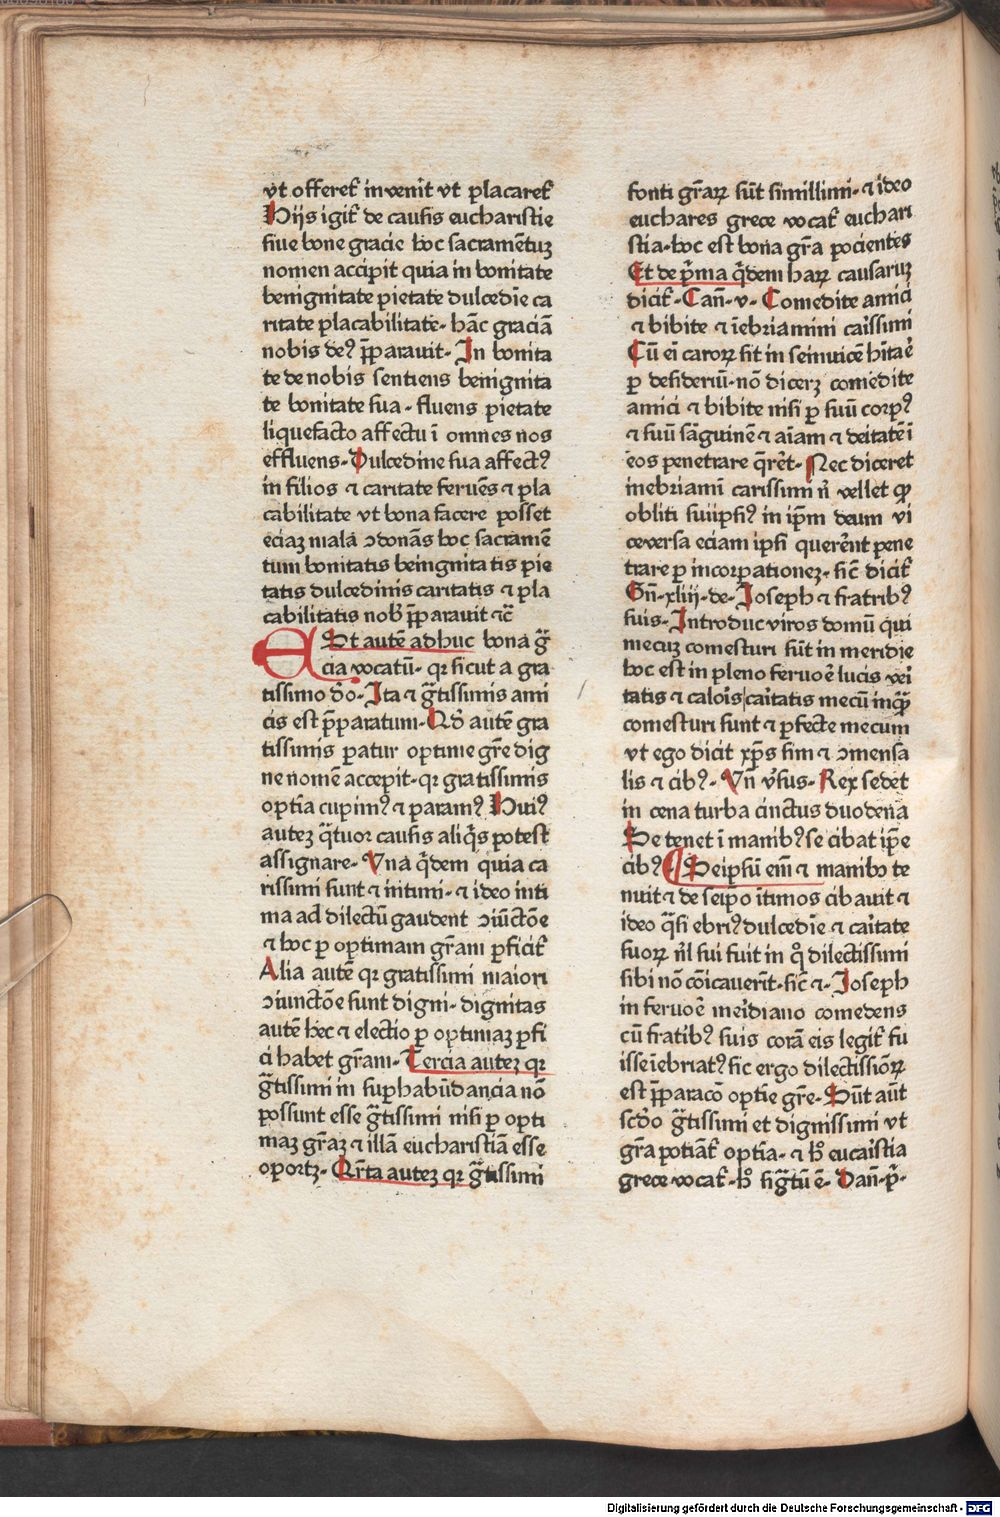 vt offeret̄ invenīt vt placaret̄
Hijs igit̄ de causis eucharistie
siue bone gracie hoc sacramētuꝫ
nomen accipit quia in bonitate
benignitate pietate dulcedīe ca
ritate placabilitate· hāc graciā
nobis deꝰ p̄parauit· In bonita
te de nobis sentiens benignita
te bonitate sua· fluens pietate
liquefacto affectu ī omnes nos
effluens· Dulcedine sua affectꝰ
in filios ⁊ caritate feruēs ⁊ pla
cabilitate vt bona facere posset
eciaꝫ malā ↄdonās hoc sacramē
tum bonitatis beingnitatis pie
tatis dulcedinis caritatis ⁊ pla
cabilitatis nob̄ p̄parauit ⁊c̄
Est autē adhuc bona ḡ
cia vocatū· qꝛ sicut a gra
tissimo dō· Ita ⁊ g̃tissimis ami
cis est p̄paratum· Qd̄ autē gra
tissimis paratur optime gr̄e dig
ne nomē accepit· qꝛ gratissimis
optīa cupimꝰ ⁊ paramꝰ Huiꝰ
autez q̃tuor causis aliq̄s potest
assignare· Vna q̄dem quia ca
rissimi sunt ⁊ intimi· ⁊ ideo inti
ma ad dilectū gaudent ↄiūctōe
⁊ hoc ꝑ optimam gr̄am ꝑficit̄
Alia autē qꝛ gratissimi maiori
ↄiunctōe sunt digni· dignitas
autē hec ⁊ electio ꝑ optimaꝫ ꝑfi
ci habet gr̄am· Tercia autez qꝛ
g̃tissimi in suꝑhabūdancia nō
possunt esse g̃tissimi nisi ꝑ opti
maꝫ gr̄aꝫ ⁊ illā eucharistiā esse
oportꝫ· Qr̄ta autez qꝛ g̃tissimi
fonti gr̄aꝝ sūt simillimi· ⁊ ideo
euchares grece vocat̄ euchari
stia· hoc est bona gr̄a pocientes
Et de p̄ma q̄dem haꝝ causaruꝫ
dicit̄· Can̄· v· Comedite amici
⁊ bibite ⁊ īebriamini caīssimi
Cū eī caroꝝ sit in seinuicē hīta ē
ꝑ desideriū· nō dicerꝫ comēdite
amici ⁊ bibite nisi ꝑ suū corpꝰ
⁊ suū sāguinē ⁊ aīam ⁊ deitatē ī
eos penetrare q̄rēt· Nec diceret
inebriamī carissimi n̄ vellet ꝙ
obliti suiipsiꝰ in ip̄m deum vi
ceversa eciam ipsi querēnt pene
trare ꝑ incorꝑationeꝫ· sic̄ dicit̄
Gn̄· xliij· de· Joseph ⁊ fratribꝰ
suis· Introduc viros domū qui
mecuꝫ comesturi sūt in meridie
hoc est in pleno feruoē lucis veī
tatis ⁊ caloīs caītatis mecū inq̄
comesturi sunt ⁊ ꝑfecte mecum
vt ego dicit xp̄s sim ⁊ ↄmensa
lis ⁊ cibꝰ· Vn̄ v̄sus· Rex sedet
in cena turba cinctus duodena
Se tenet ī manibꝰ se cibat ip̄e
cibꝰ Seip̄sū eīm ⁊ manibꝫ te
nuit ⁊ de seip̄o ītimos cibauit ⁊
ideo q̄si ebriꝰ dulcedīe ⁊ caītate
suoꝝ nīl sui fuit in q̊ dilectissimi
sibi nō cōicauer̄t· sic̄ ⁊· Joseph
in feruoē meīdiano comedens
cū fratibꝰ suis corā eis legit̄ fu
isse īebriatꝰ sic ergo dilectissiōꝝ
est p̄paracō optīe gr̄e· Sūt aūt
scd̄o g̃tissimi et dignissimi vt
gr̄a potiāt̄ optīa· ⁊ h̄ eucaīstia
grece vocat̄· h̄ sig̃tū ē· Dan̄· p̄·
Digitalisierung gefördert durch die Deutsche Forschungsgemeinschaft - DFG